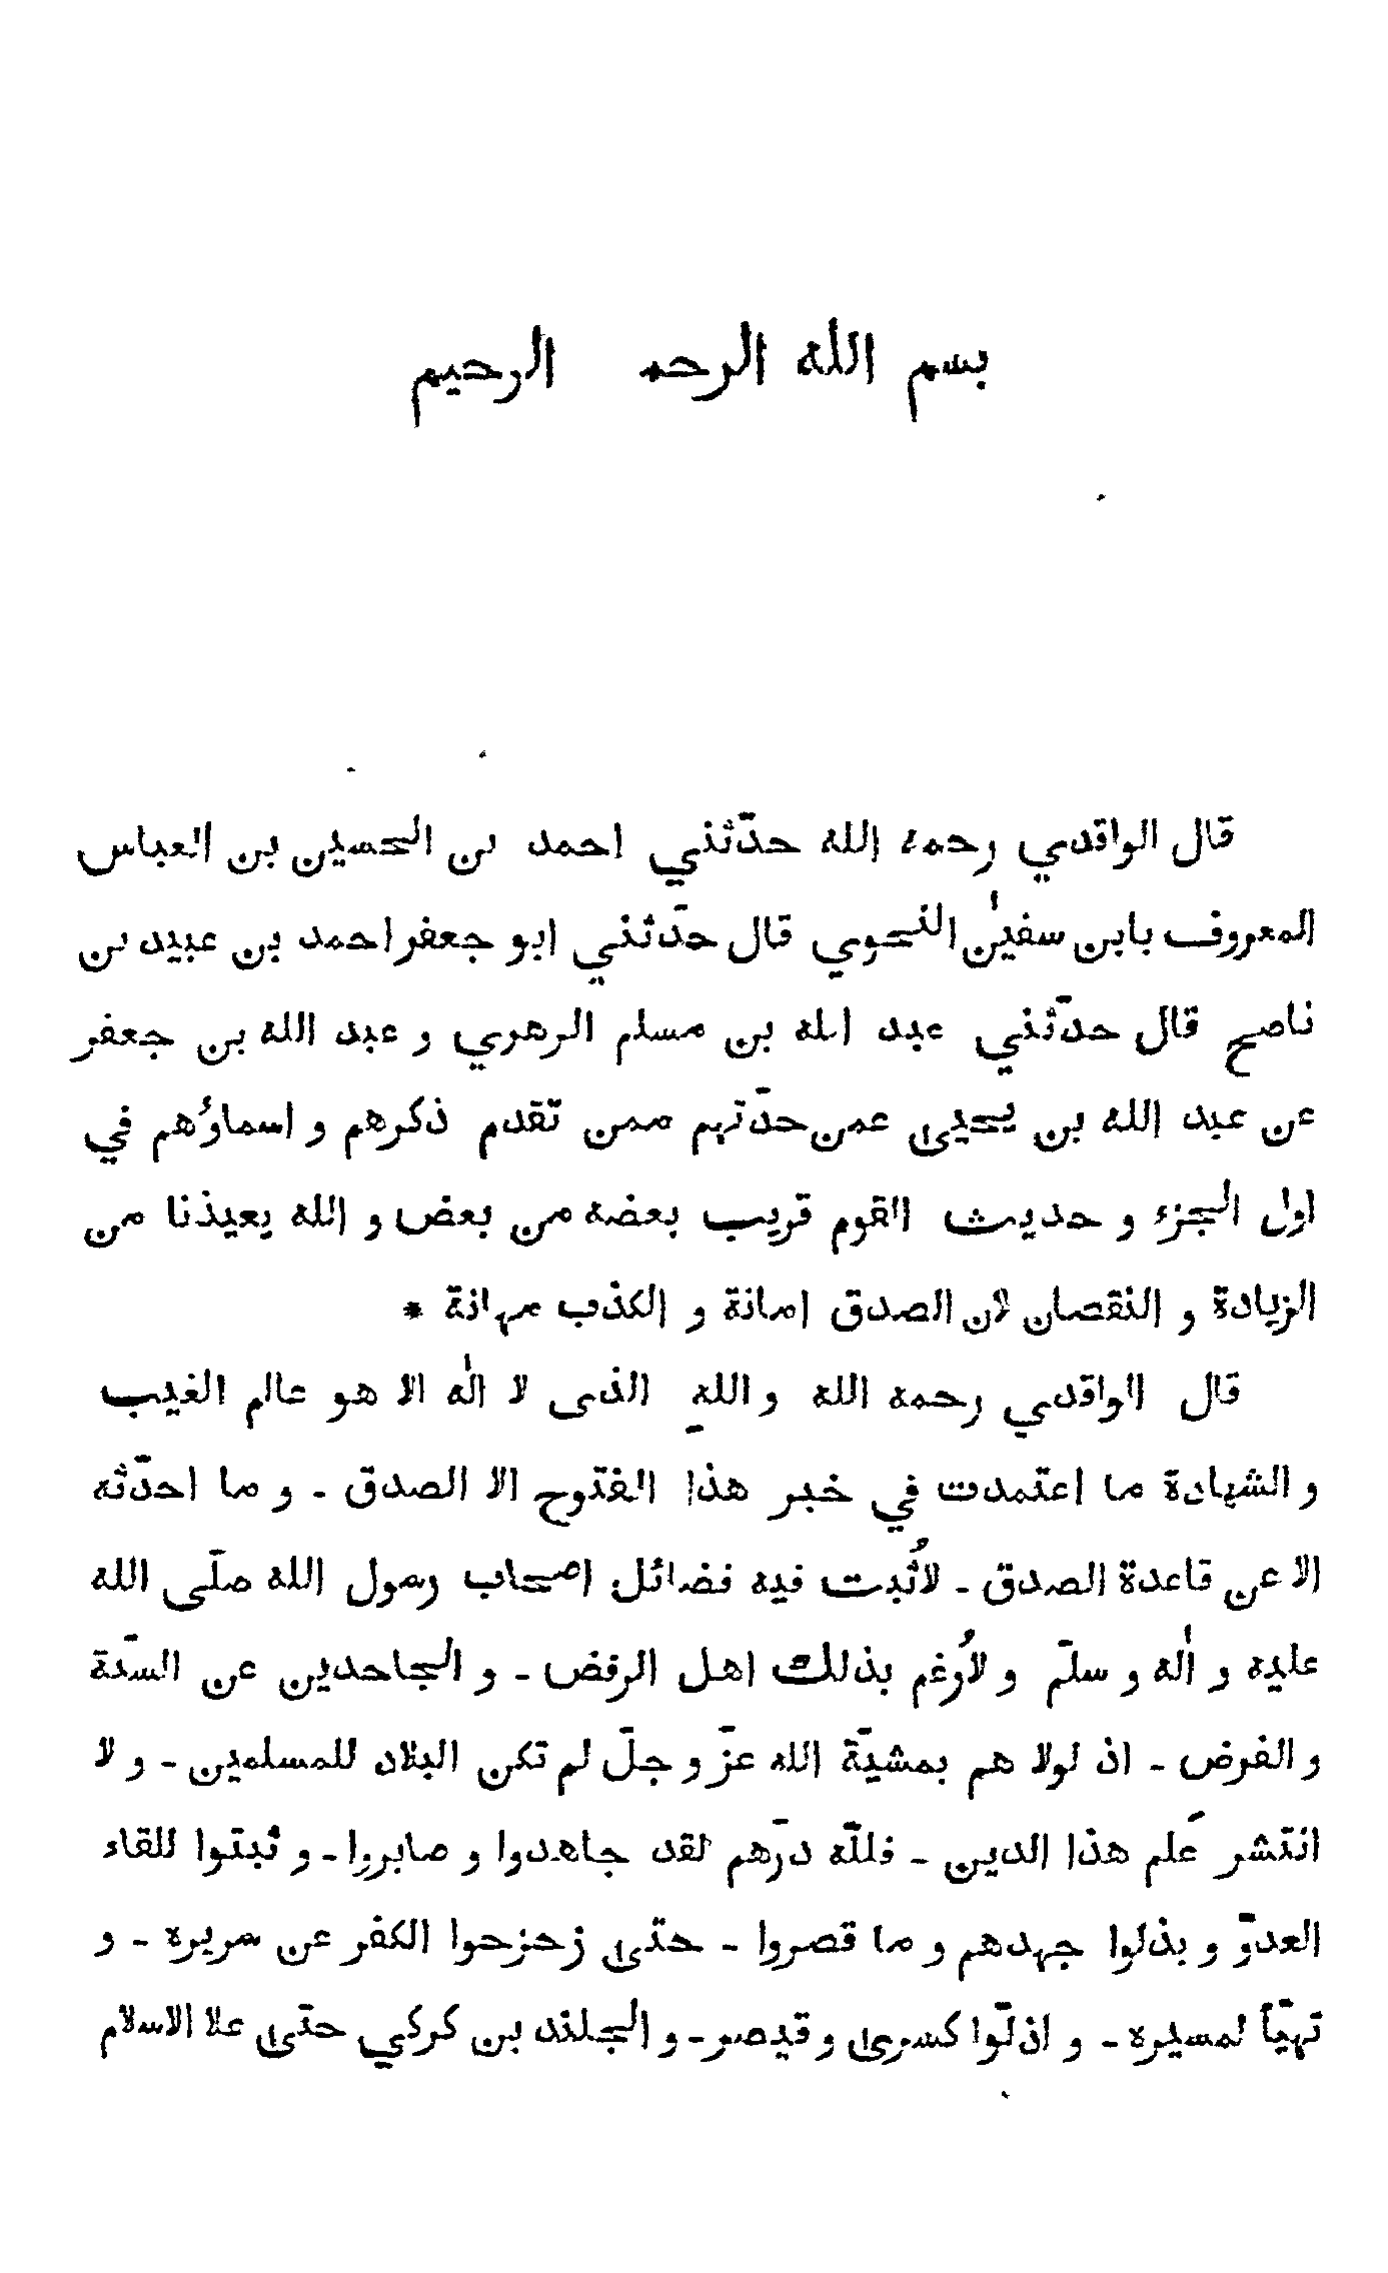 بسم الله الرحمن الرحيم
قال الواقدي رحمه الله حدّثني احمد بن الحسين بن العباس
المعروف بابن سفيٰن النحوي قال حدّثني ابو جعفر احمد بن عبيد بن
ناصح قال حدّثني عبد الله بن مسلم الزهري و عبد الله بن جعفر
عن عبد الله بن يحيى عمن حدّثهم ممن تقدم ذكرهم و اسماؤهم في
اول الجزء و حديث القوم قريب بعضه من بعض و الله يعيذنا من
الزيادة و النقصان لان الصدق امانة و الكذب مهانة *
قال الواقدي رحمه الله و اللهِ الذى لا الٰه الا هو عالم الغيب
و الشهادة ما اعتمدت في خبر هذا الفتوح الا الصدق ـ و ما احدّثه
الا عن قاعدة الصدق ـ لاُثبت فيه فضائل اصحاب رسول الله صلّى الله
عليه و اٰله و سلّم و لاُرغم بذلك اهل الرفض ـ و الجاحدين عن السنّة
و الفرض ـ اذ لولا هم بمشيّة الله عزّ و جلّ لم تكن البلاد للمسلمين ـ و لا
انتشر عَلم هذا الدين ـ فللّه درّهم لقد جاهدوا و صابروا ـ و ثبتوا للقاء
العدوّ و بذلوا جهدهم و ما قصروا ـ حتّى زحزحوا الكفر عن سريره ـ و
تهيّأ لمسيره ـ و اذلّوا كسرى و قيصر ـ و الجلند بن كركي حتّى علا الاسلام